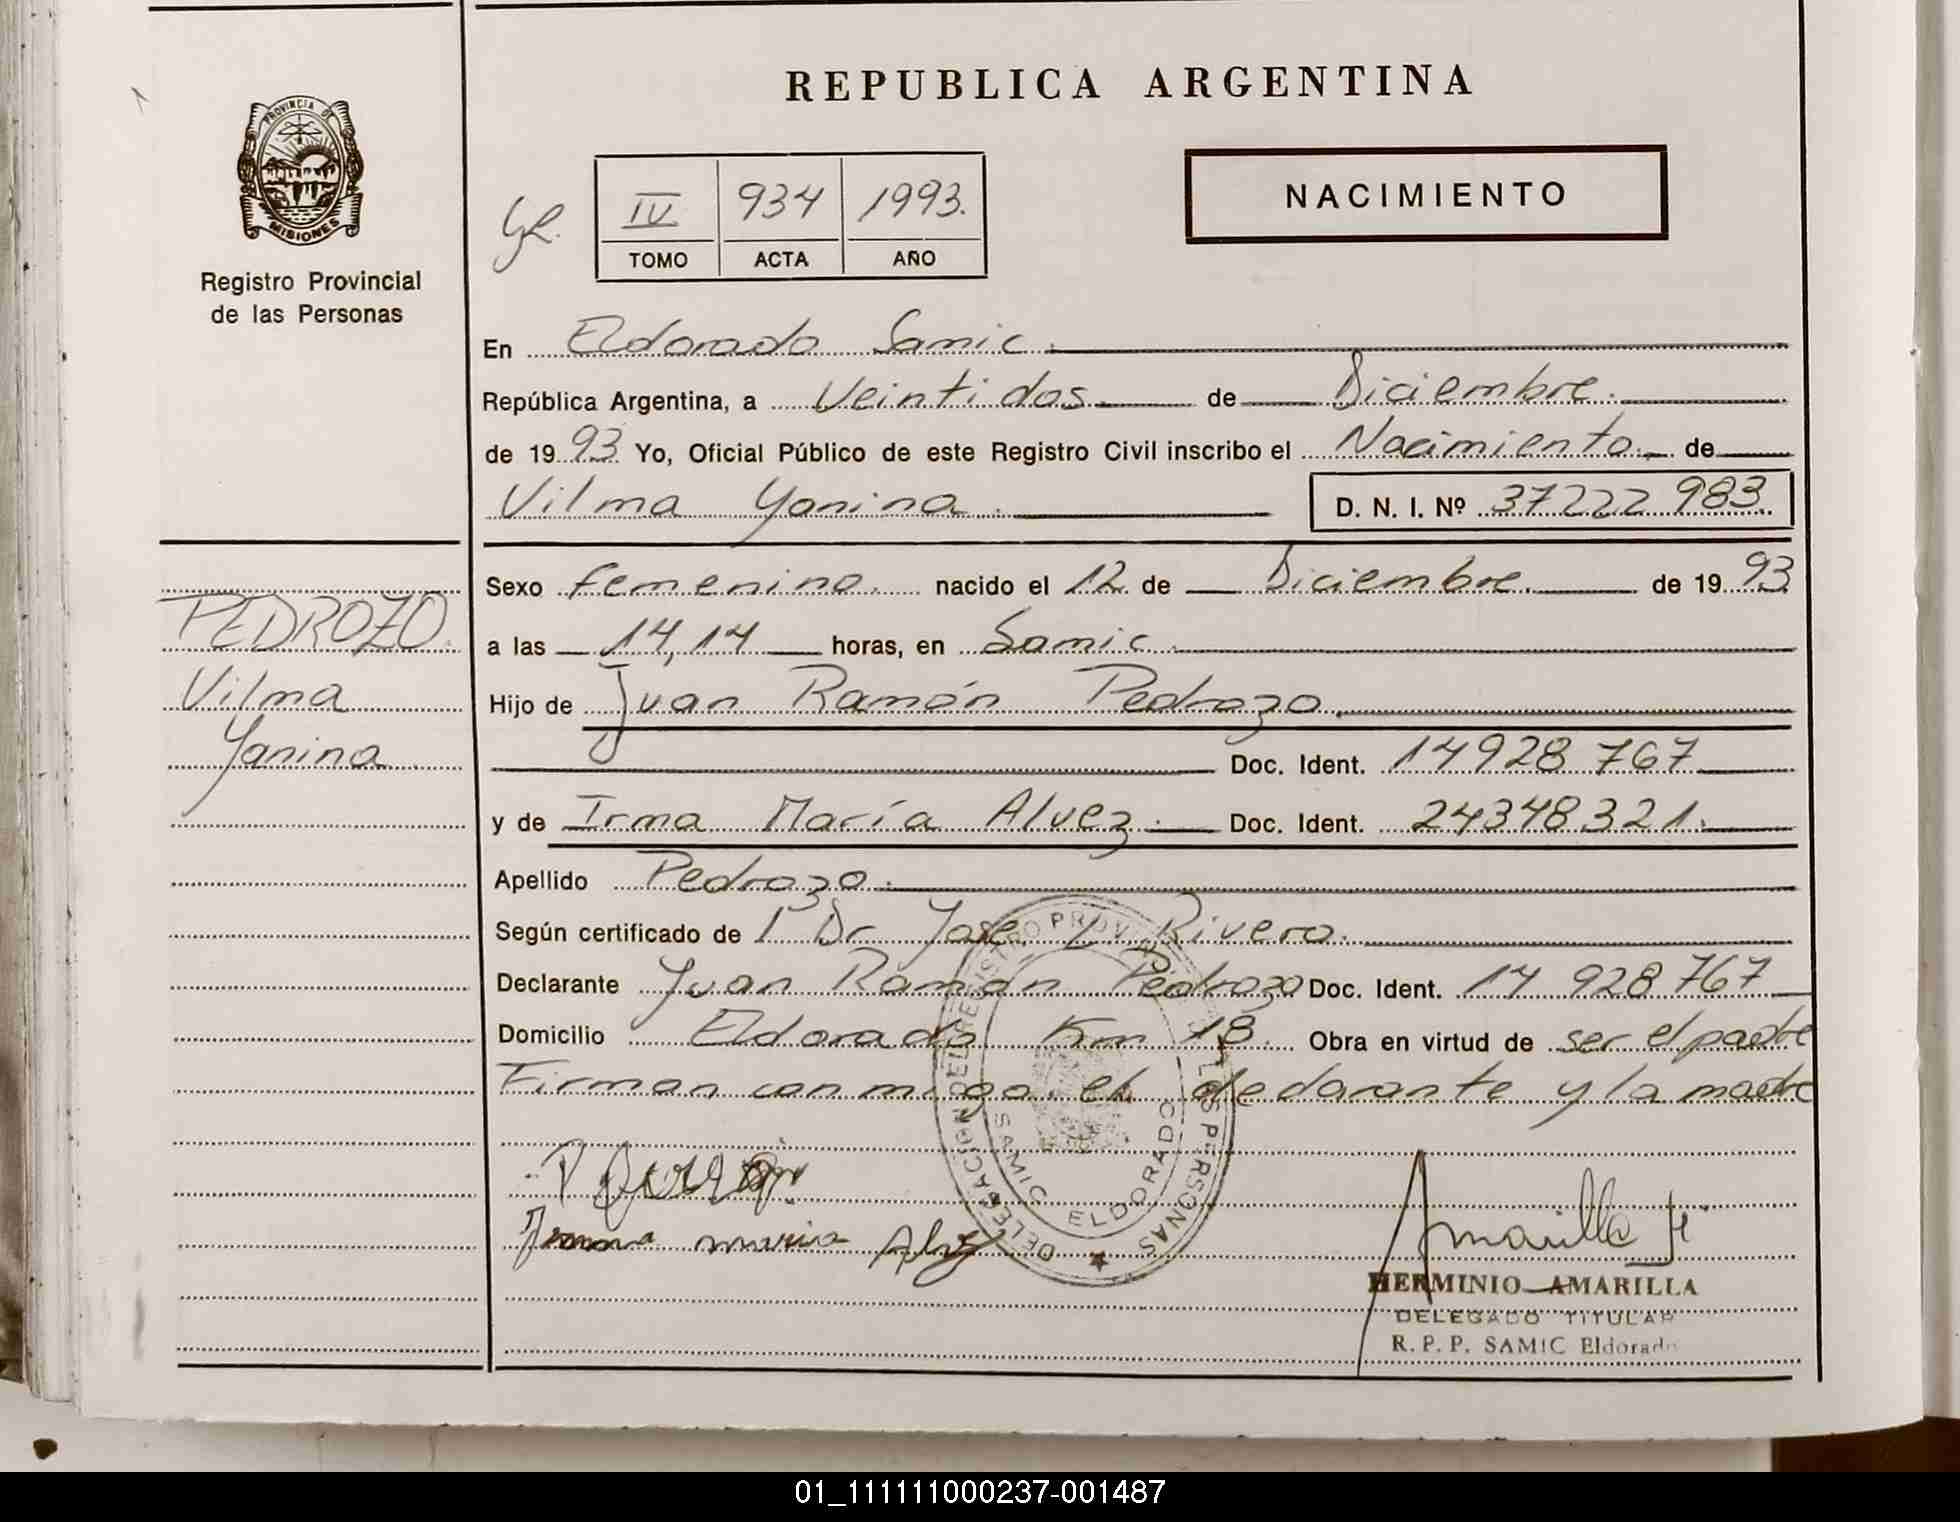 REPUBLICA ARGENTINA
PROVINCIA DE
MISIONES
Registro Provincial
de las Personas
IV 934 1993.
TOMO ACTA AÑO
NACIMIENTO
En Eldorado Samic.
República Argentina, a Veintidos de Diciembre.
de 1993 Yo, Oficial Público de este Registro Civil inscribo el Nacimiento de
Vilma Yanina. D. N. I. Nº 37222983.
Sexo femenino. nacido el 12 de Diciembre. de 1993
a las 14,14 horas, en Samic.
Hijo de Juan Ramón Pedrozo.
Doc. Ident. 14928767
y de Irma María Alvez. Doc. Ident. 24348321.
Apellido Pedrozo.
Según certificado de Dr Jose L Rivero.
Declarante Juan Ramon Pedrozo Doc. Ident. 14 928767
Domicilio Eldorado Km 18. Obra en virtud de ser el padre
Firman conmigo el declarante y la madre
PEDROZO.
Vilma
Yanina
DELEGACION DEL REGISTRO PROVINCIAL DE LAS PERSONAS
SAMIC ELDORADO
maria Alvez
Amarilla H
HERMINIO AMARILLA
DELEGADO TITULAR
R. P. P. SAMIC Eldorado
01_111111000237-001487